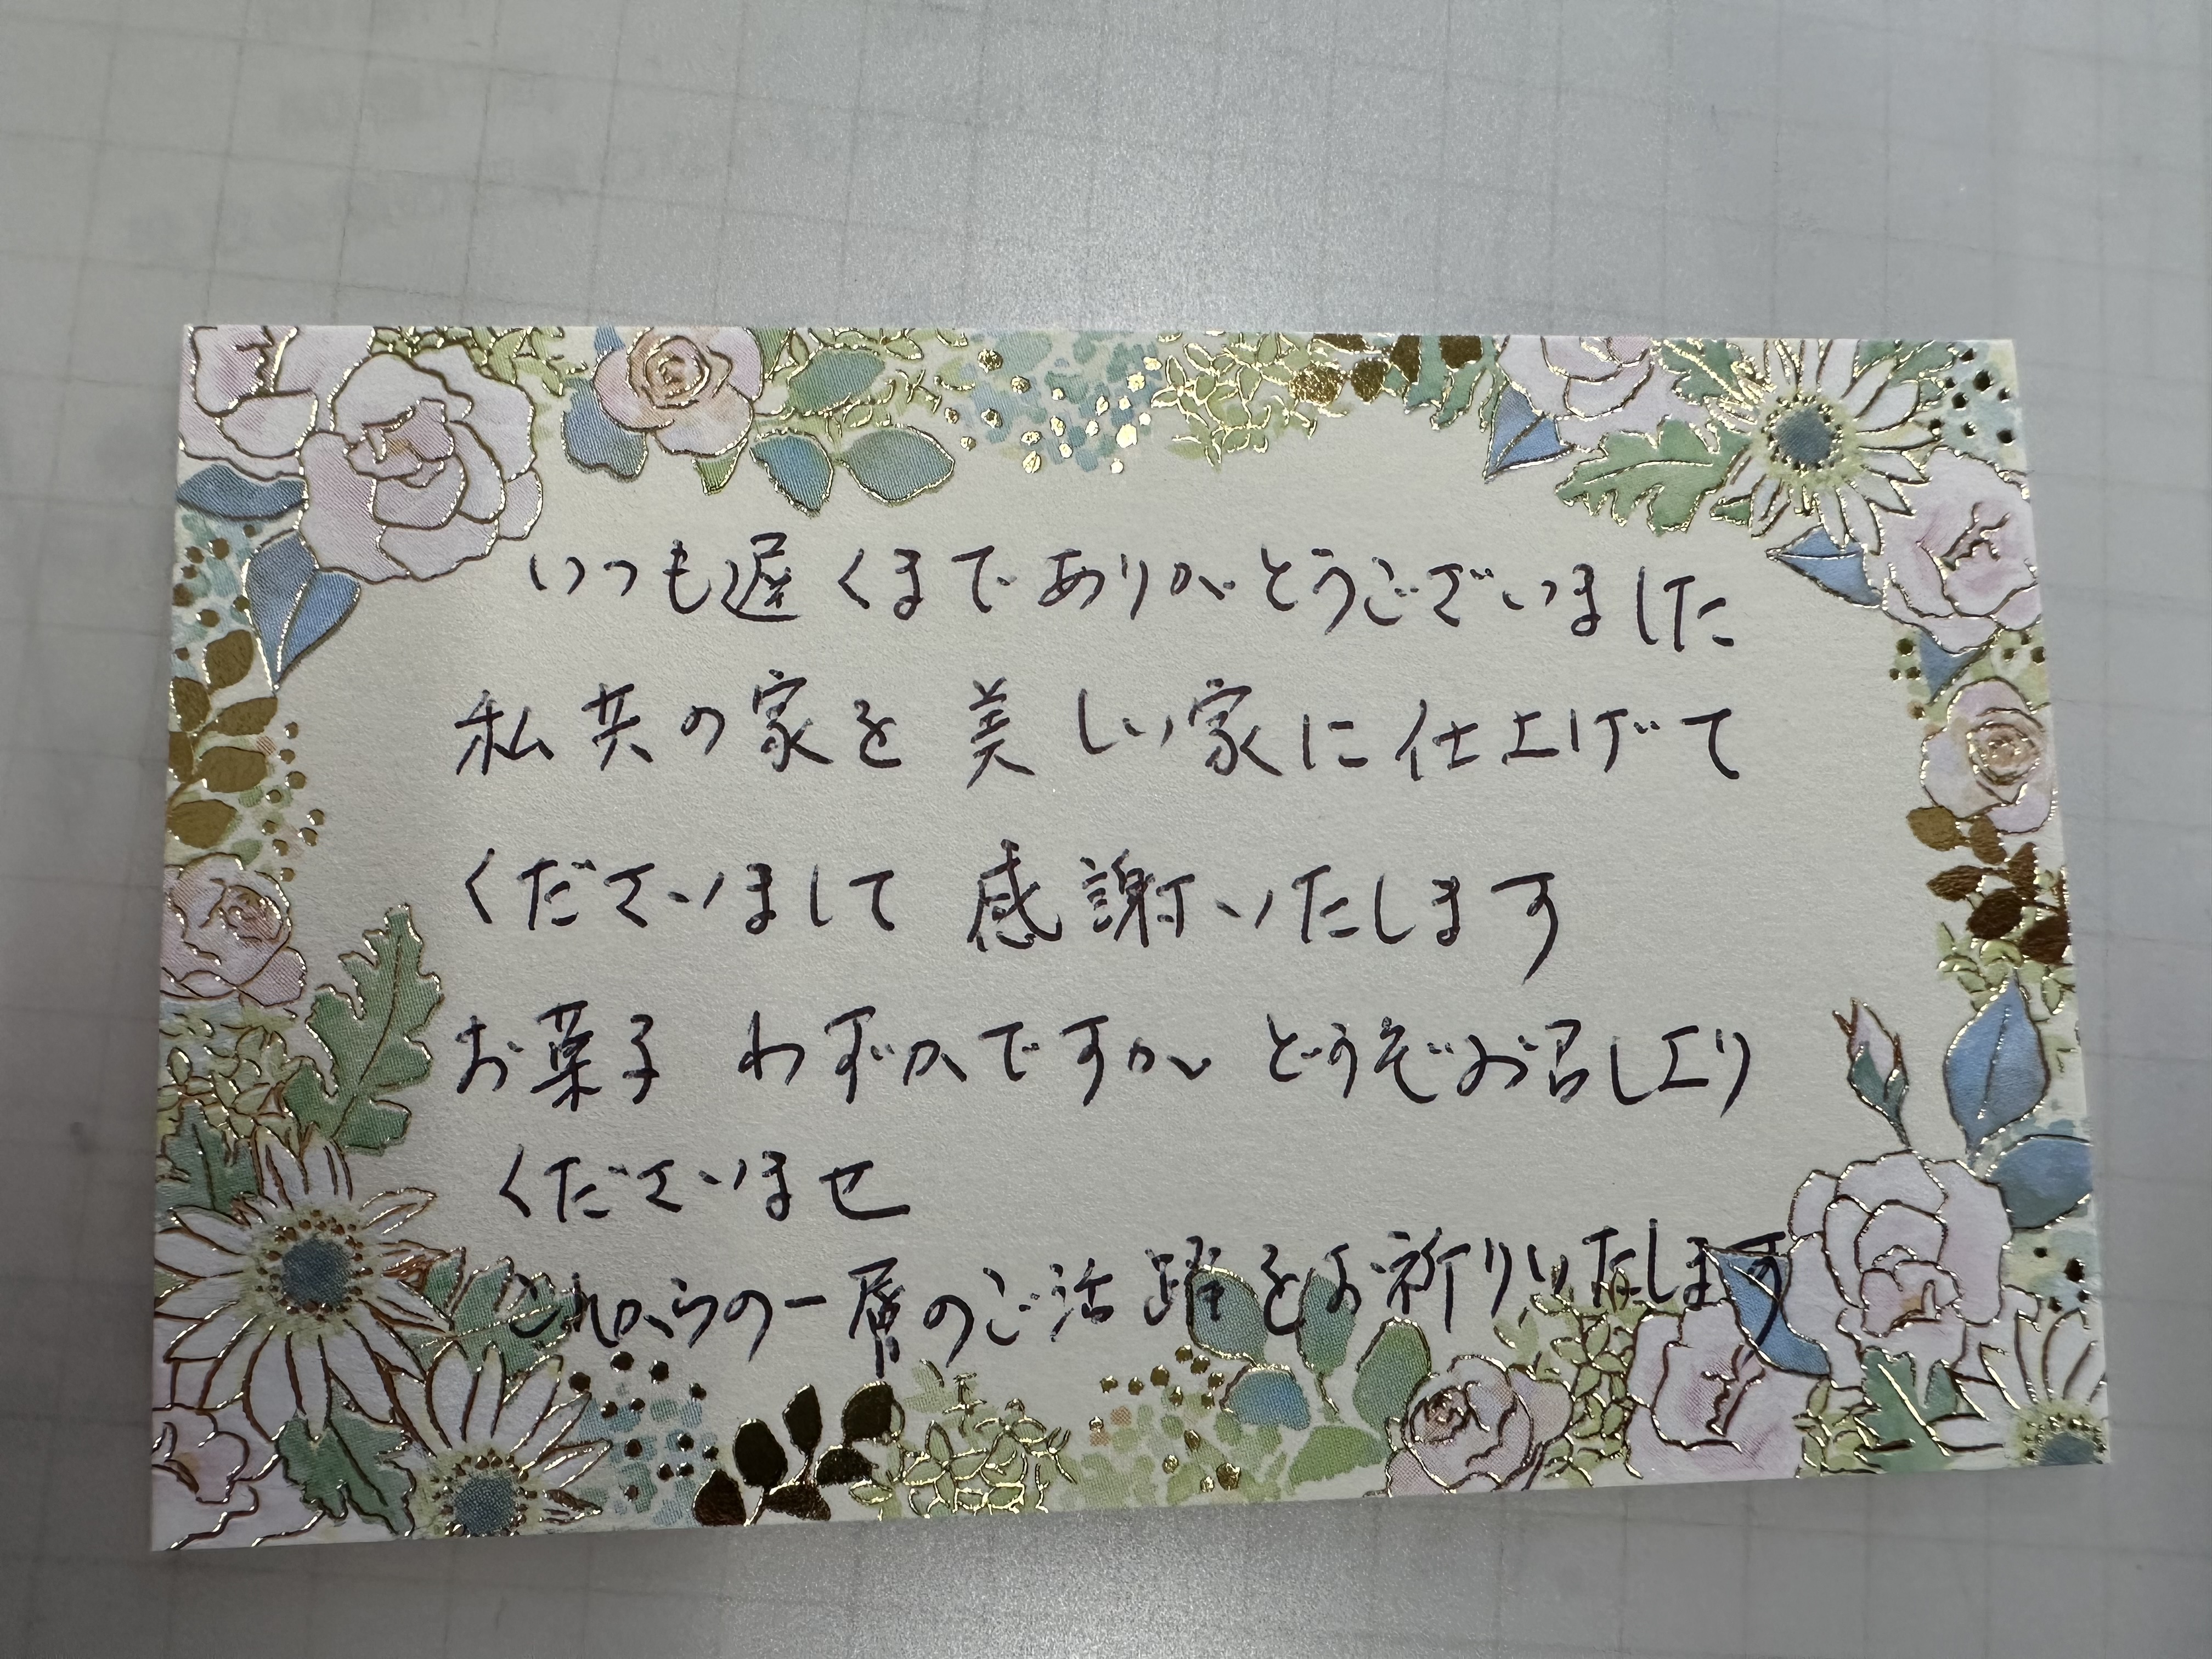 いつも遅くまでありがとうございました
私共の家を美しい家に仕上げて
くださいまして 感謝いたします
お菓子 わずかですが どうぞお召し上り
くださいませ
これからの一層のご活躍をお祈りいたします